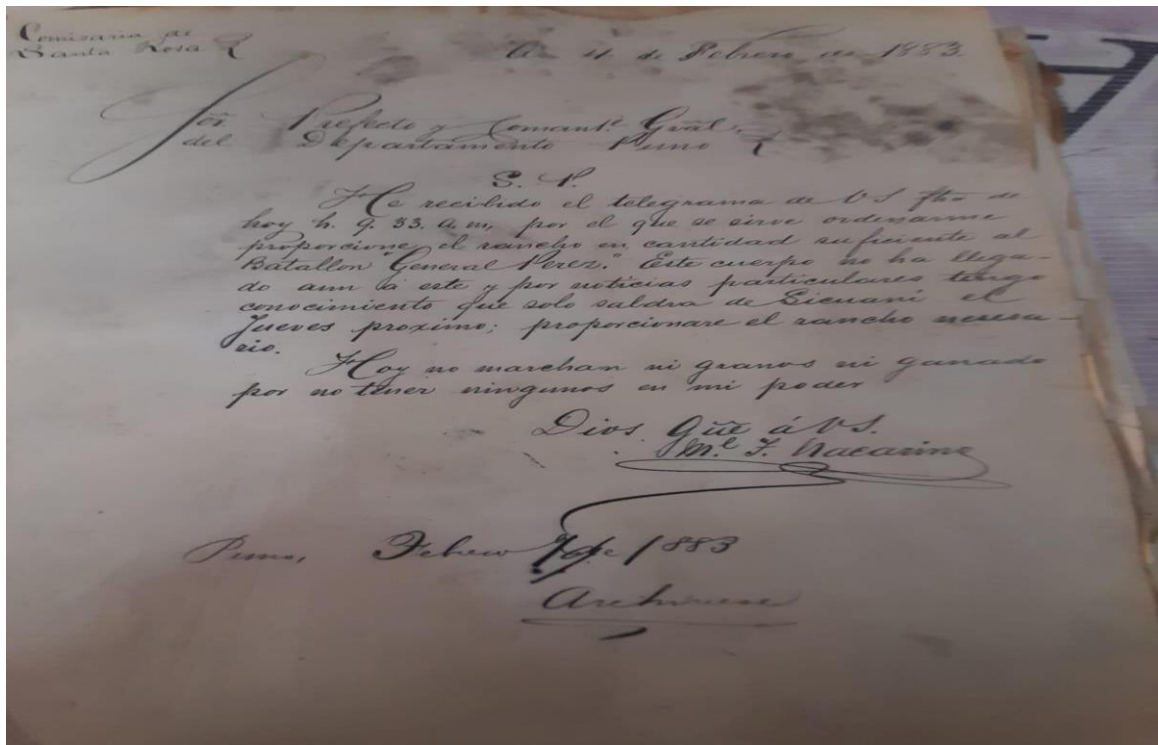 Comisaria de
Santa Rosa
A 4 de Febrero de 1883.
Sor. Prefecto y Comante. Gral.
del Departamento Puno
S. P.
He recibido el telegrama de VS fho de
hoy h. 9. 33. a.m, por el que se sirve ordenarme
proporcione el rancho en cantidad suficiente al
Batallon "General Perez." Este cuerpo no ha llega-
do aun á este y por noticias particulares tengo
conocimiento que solo saldra de Sicuani el
Jueves proximo; proporcionare el rancho necesa-
rio.
Hoy no marchan ni granos ni ganado
por no tener ningunos en mi poder
Dios gue á VS.
Ml. F.
Puno, Febrero de 1883
Archivese